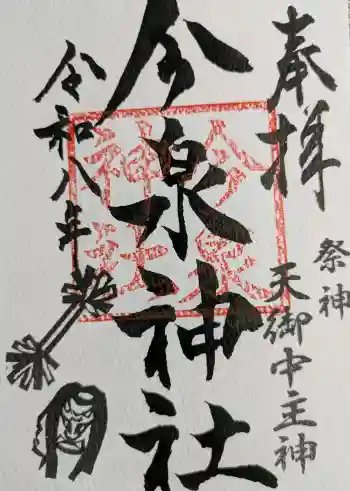 奉拝
祭神
天御中主神
今泉神社
今泉
神社
令和八年